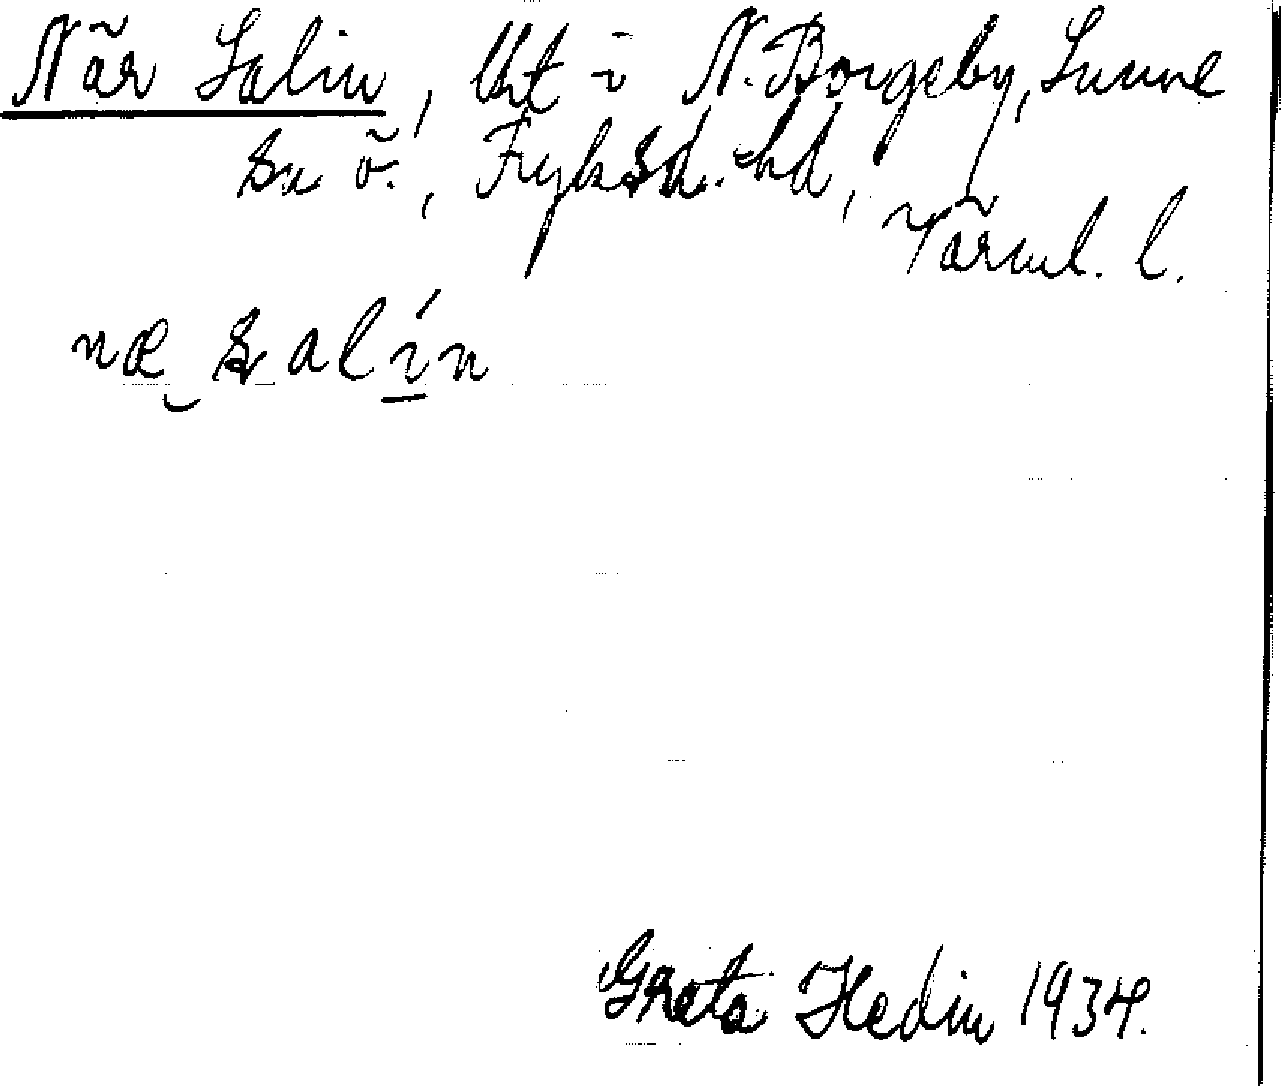 När Salin, lht i N. Borgeby, Sunne
sn ö., Fryksd. hd,
Värml. l.
næ salín
Greta Hedin 1934.